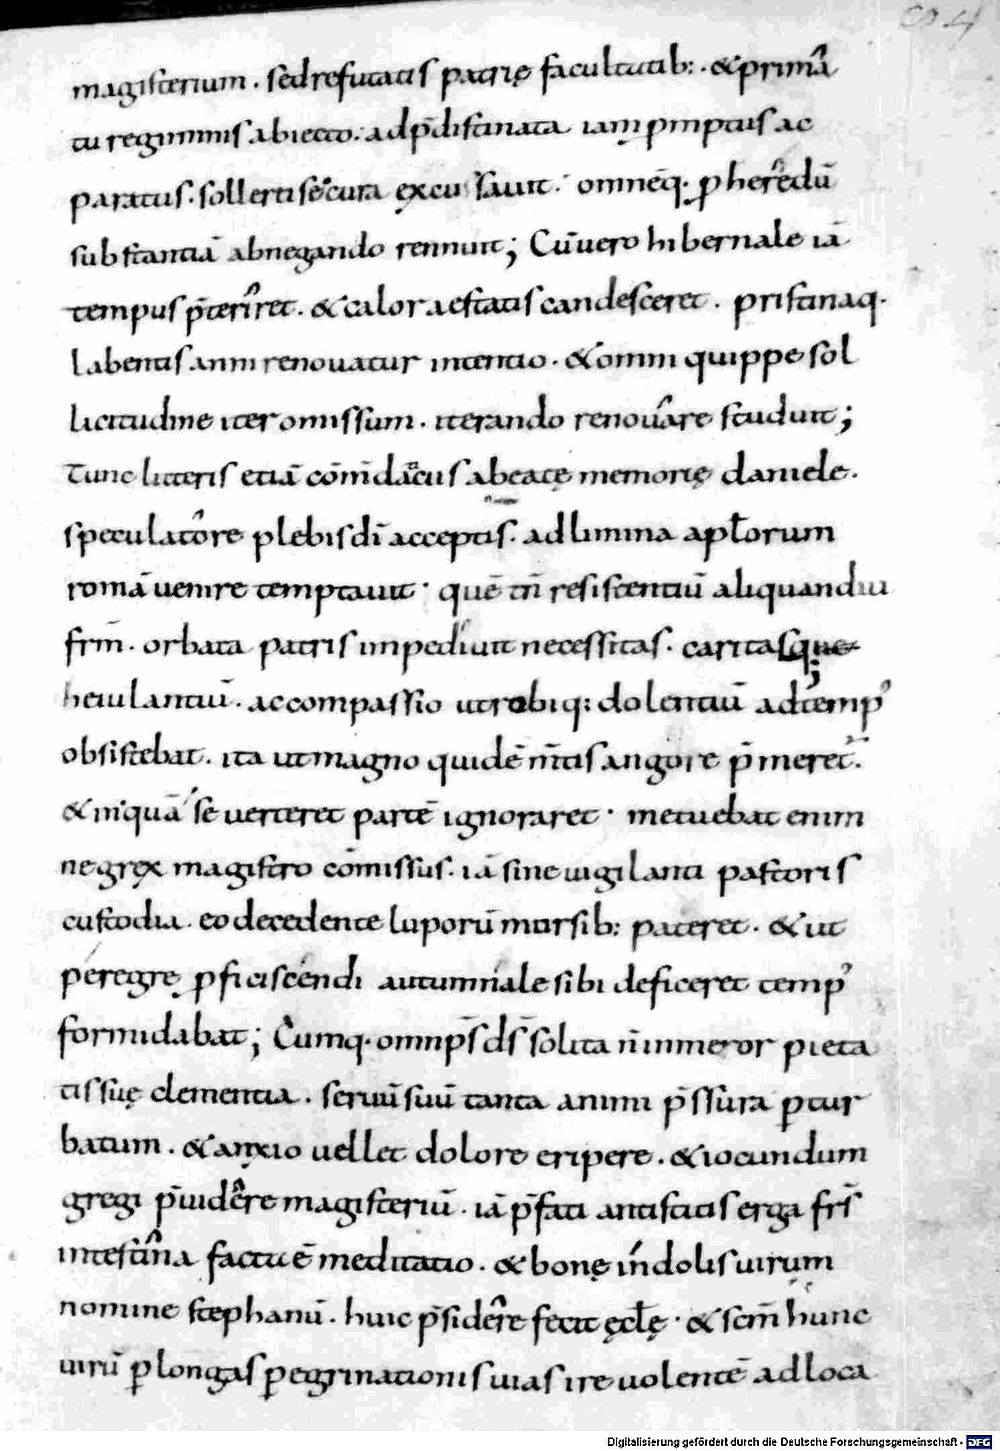 magisterium. sed refutatis patrię facultatib:. & primā
tu regiminis abiecto. ad p̄distinata iam promptus ac
paratus. sollerti se cura excusauit. omnēq. p heredū
substantiā abnegando rennuit; Cū uero hibernale iā
tempus p̄teriret. & calor aestatis candesceret. pristinaq.
labentis anni renouatur intentio. & omni quippe sol
licitudine iter omissum. iterando renouare studuit;
Tunc litteris etiā cōmdatus a beatę memorię daniele.
speculatore plebis dī acceptis. ad limina apłorum
romā uenire temptauit. quē tn̄ resistentiū aliquandiu
frm̄. orbata patris impediuit necessitas. caritasque
heiulantiū. ac compassio utrobiq: dolentiū ad temp'
obsistebat. ita ut magno quidē m̄tis angore p̄meret'.
& in quā se uerteret partē ignoraret. metuebat enim
ne grex magistro cōmissus. iā sine uigilanti pastoris
custodia. eo decedente luporū morsib: pateret. & ut
peregre pficiscendi autumnale sibi deficeret temp'
formidabat; Cumq. omnps̄ ds̄ solita n̄ inmemor pieta
tis suę clementia. seruū suū tanta animi p̄ssura ptur
batum. & anxio uellet dolore eripere. & iocundum
gregi p̄uidere magisteriū. iā p̄fati antistitis erga frs̄
intestina factu ē meditatio. & bonę indolis uirum
nomine stephanū. huic p̄sidere fecit ęcłę. & scm̄ hunc
uirū p longas peregrinationis uias ire uolentē ad loca
Digitalisierung gefördert durch die Deutsche Forschungsgemeinschaft - DFG